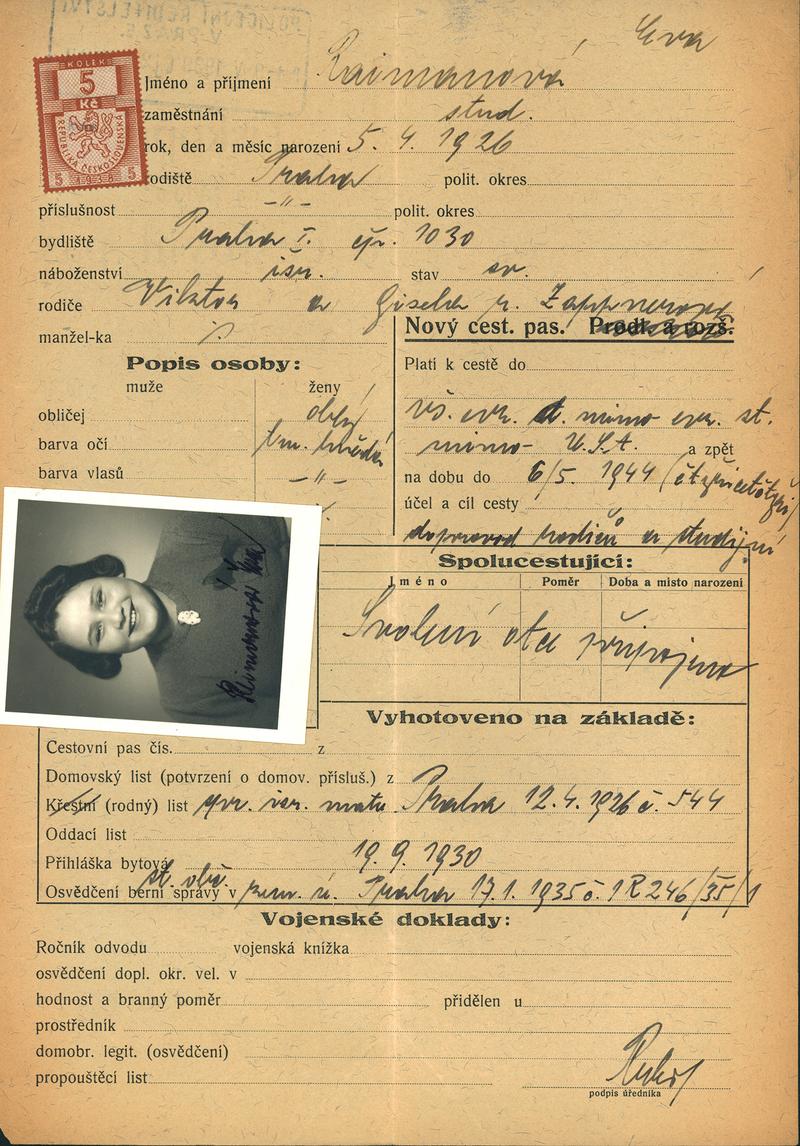 POLICEJNÍ ŘEDITELSTVÍ
V PRAZE
KOLEK
5
Kč
REPUBLIKA ČESKOSLOVENSKÁ
5 1938 5
Jméno a příjmení Raimanová Eva
zaměstnání stud.
rok, den a měsíc narození 5. 4. 1926
rodiště Praha polit. okres
příslušnost -"- polit. okres
bydliště Praha I. čp. 1030
náboženství isr. stav sv.
rodiče Viktor a Gisela r. Zappnerová
manžel-ka
Nový cest. pas. Prodl. a rozš.
Popis osoby:
muže ženy
Platí k cestě do
obličej obly
vš. evr. a. mimo evr. st.
barva očí tm. hnědá
mimo U.S.A. a zpět
barva vlasů -"-
na dobu do 6/5. 1944 (čtyřicetčtyři)
účel a cíl cesty
doprovod rodičů a studijní
Spolucestující:
Jméno Poměr Doba a místo narození
Svolení otce připojeno
Raimanová Eva
Vyhotoveno na základě:
Cestovní pas čís. z
Domovský list (potvrzení o domov. přísluš.) z
Křestní (rodný) list isr. matr. Praha 12.4.1926 č. 544
Oddací list
Přihláška bytová 19. 9. 1930
st. obč.
Osvědčení berní správy v zem. ú. Praha 17.1.1935 č. 1R246/35/1
Vojenské doklady:
Ročník odvodu vojenská knížka
osvědčení dopl. okr. vel. v
hodnost a branný poměr přidělen u
prostředník
domobr. legit. (osvědčení)
propouštěcí list
podpis úředníka